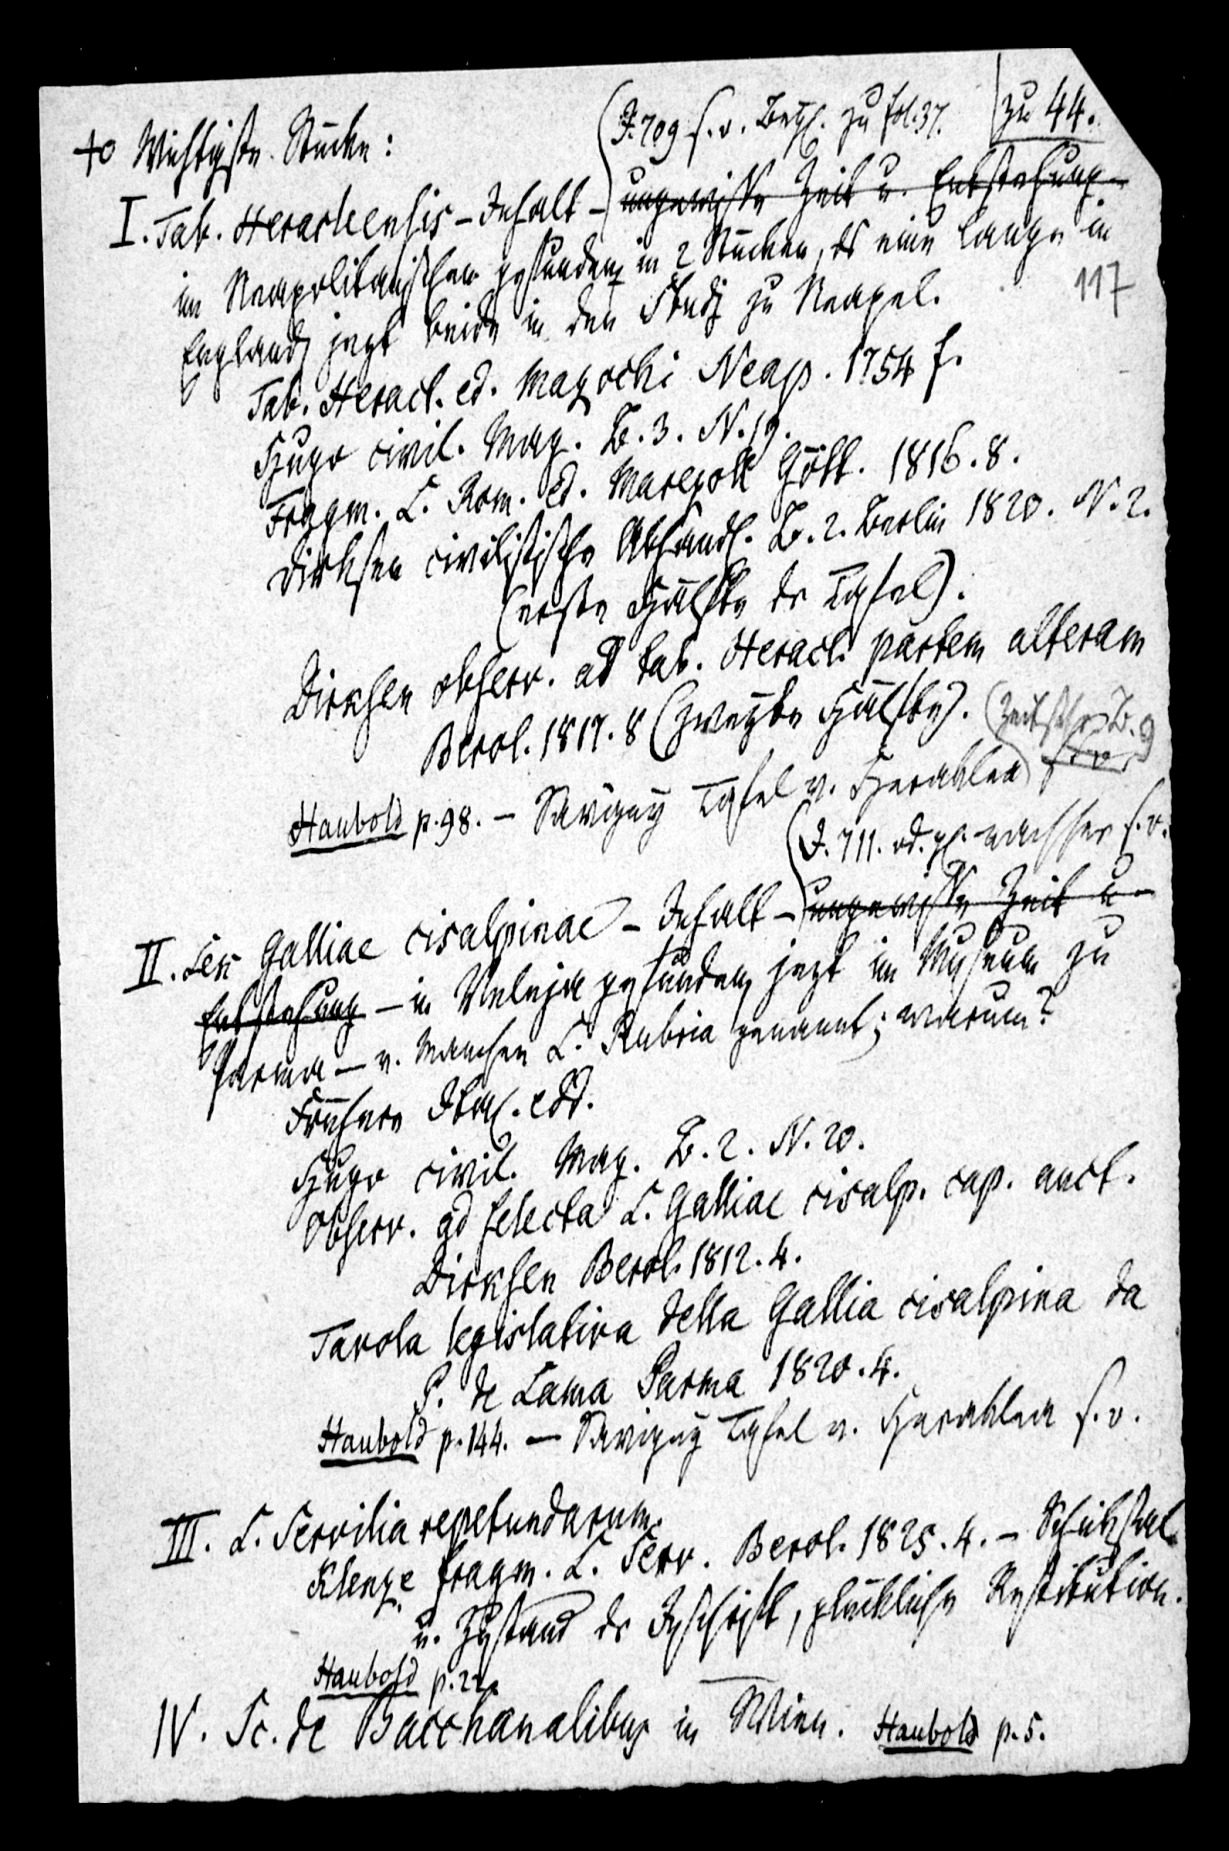 zu 44.
(J. 709 s. o. Beyl. zu fol. 37.
+o Wichtigste Stücke:
I. Tab. Heracleensis – Inhalt – ungewisse Zeit u. Entstehung –
im Neapolitanischen gefunden in 2 Stücken, das eine lange in
117
England, jezt beide in den Studj zu Neapel.
Tab. Heracl. ed. Mazochi Neap. 1754 f.
Hugo civil. Mag. B. 3. N. 19.
Fragm. L. Rom. ed. Marezoll Gött. 1816. 8.
Dirksen civilistische Abhandl. B. 2. Berlin 1820. N. 2.
(erste Hälfte der Tafel).
Dirksen observ. ad tab. Heracl. partem alteram
Berol. 1817. 8 (zweyte Hälfte). (Zeitschr. B. 9
Haubold p. 98. – Savigny Tafel v. Heraklea
(J. 711. od. gl. nachher s. o.
II. Lex Galliae cisalpinae – Inhalt – ungewisse Zeit u
Entstehung – in Veleja gefunden, jezt im Museum zu
Parma – v. Manchen L. Rubria genannt; warum?
Frühere Ital. edd.
Hugo civil. Mag. B. 2. N. 20.
Observ. ad selecta L. Galliae cisalp. cap. auct.
Dirksen Berol. 1812. 4.
Tavola legislativa della Gallia cisalpina da
P. de Lama Parma 1820. 4.
Haubold p. 144. – Savigny Tafel v. Heraklea s. o.
III. L. Servilia repetundarum.
Klenze fragm. L. Serv. Berol. 1825. 4. – Schicksal
u. Zustand der Inschrift, glückliche Restitution.
Haubold p. 22.
IV. Sc. de Bacchanalibus in Wien. Haubold p. 5.